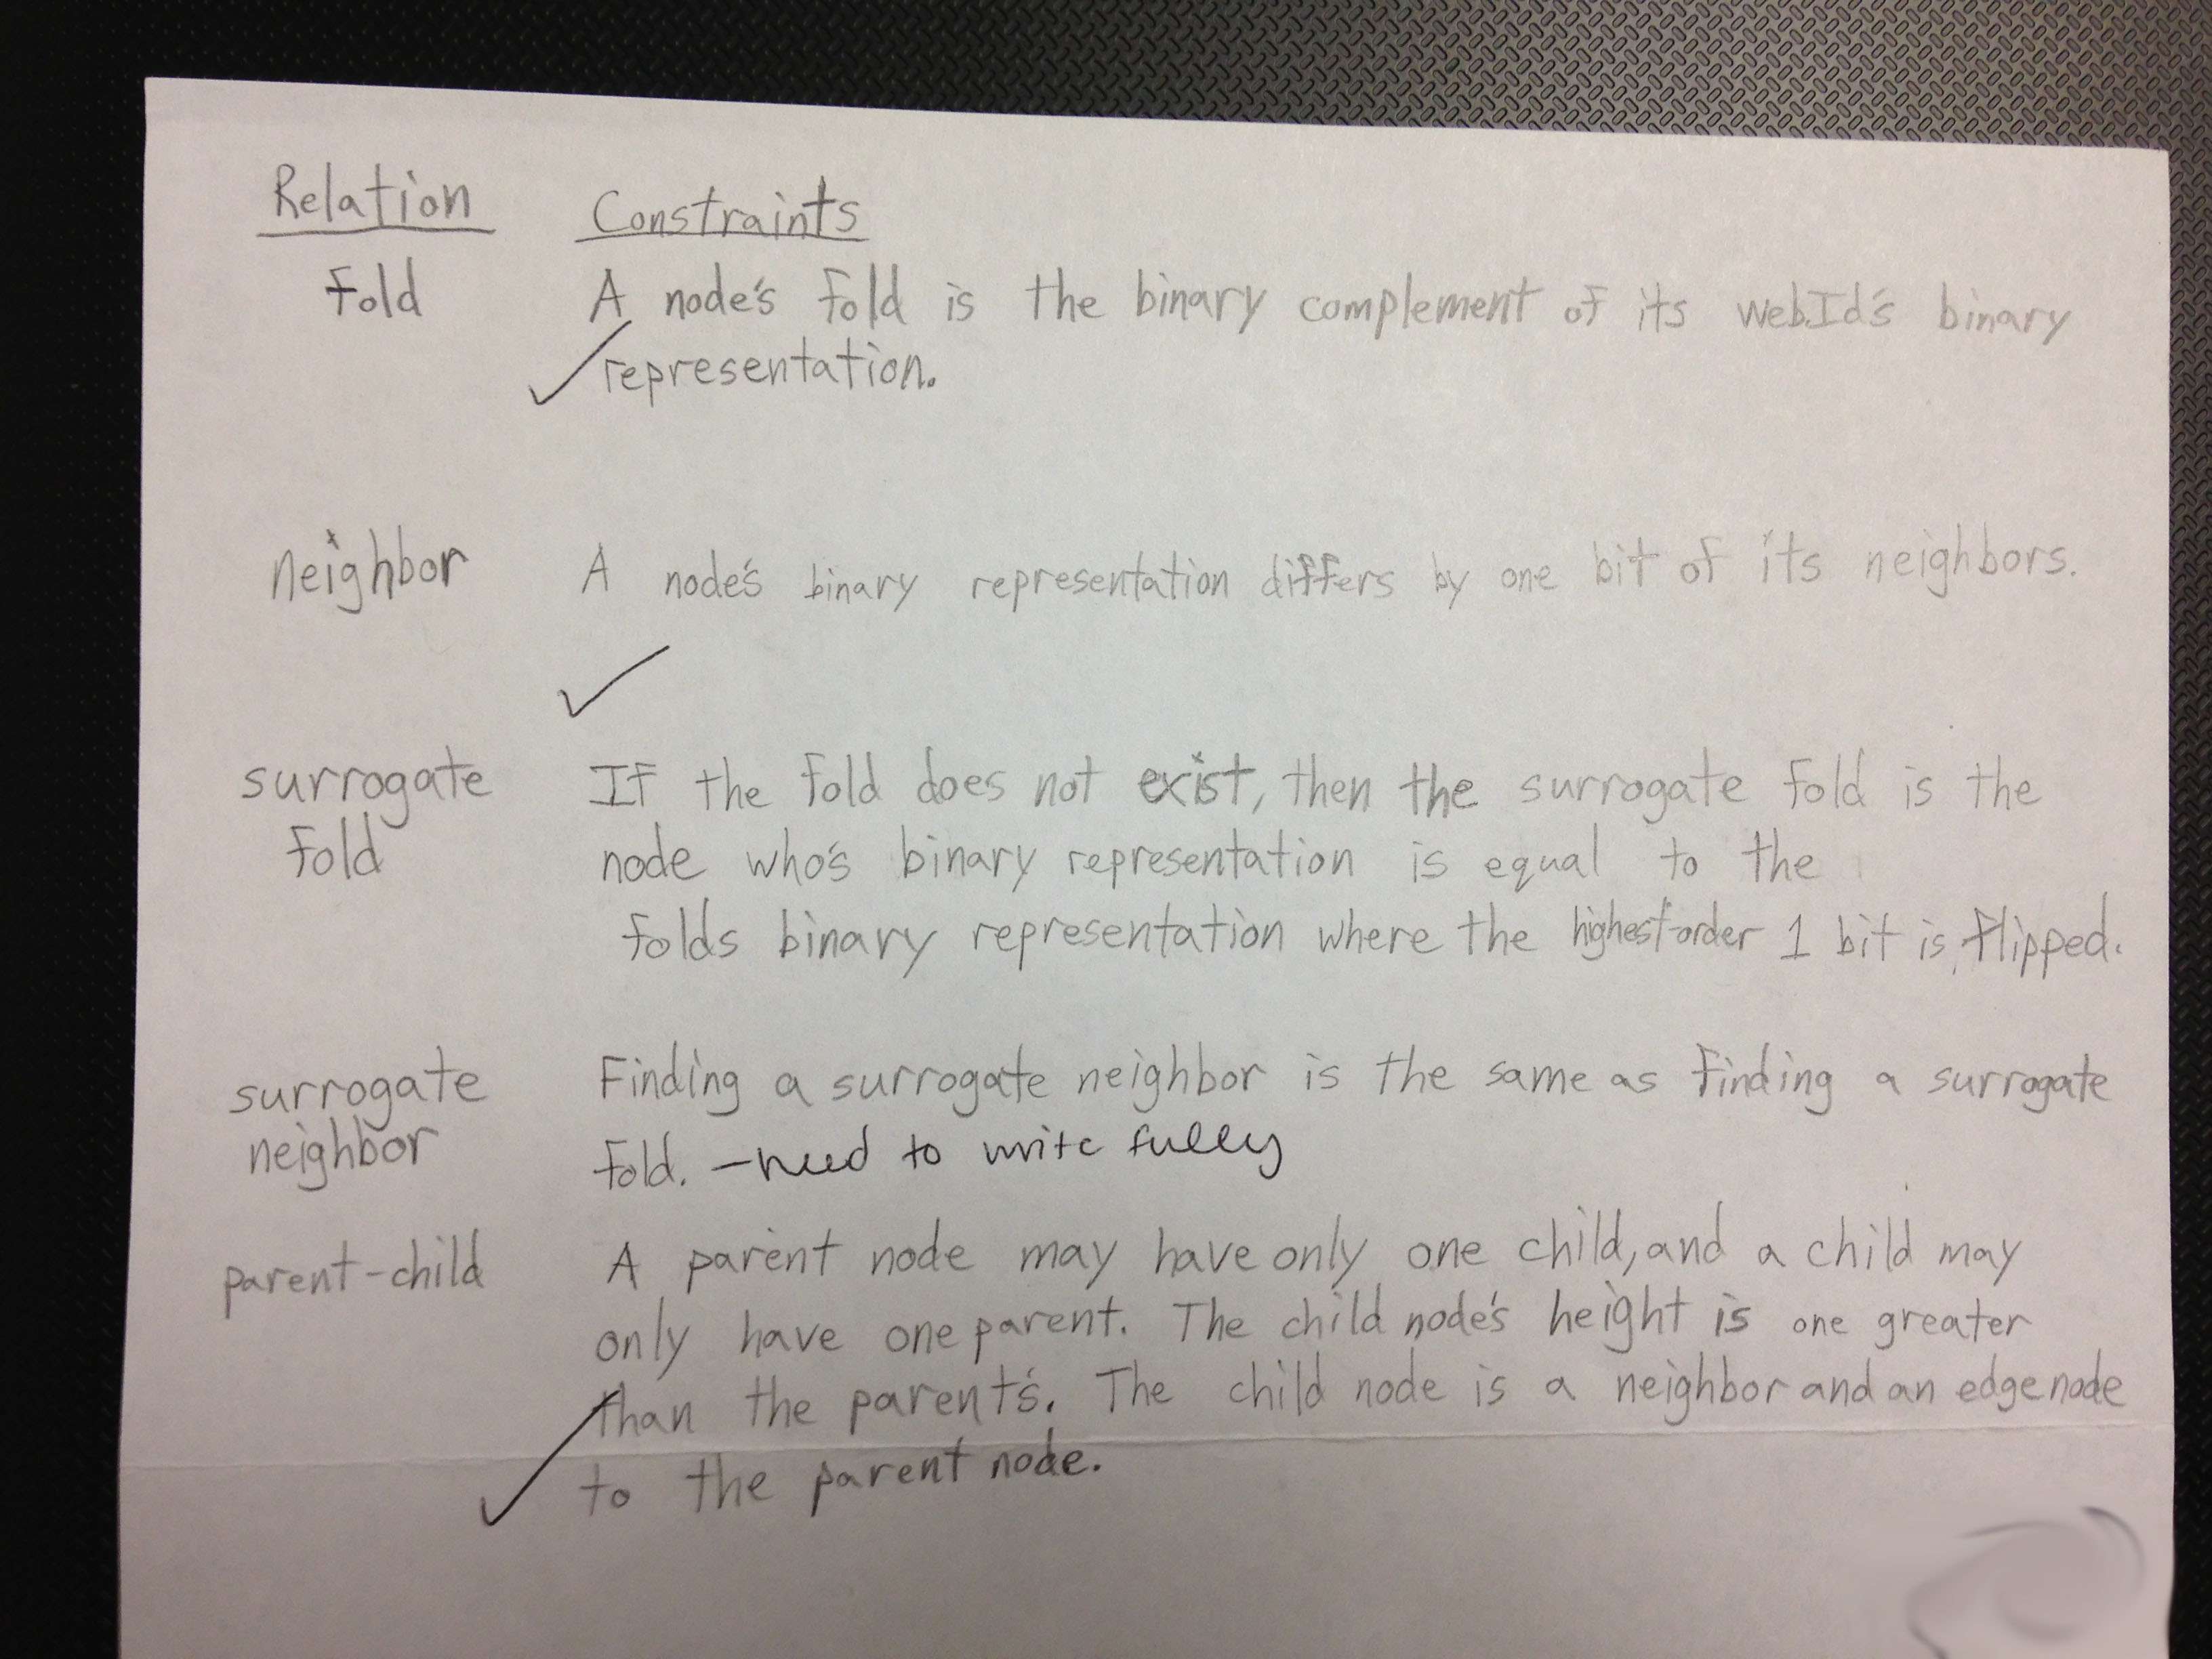 Relation Constraints
fold A node's fold is the binary complement of its webId's binary
representation.
neighbor A node's binary representation differs by one bit of its neighbors.
surrogate If the fold does not exist, then the surrogate fold is the
fold node who's binary representation is equal to the
folds binary representation where the highest-order 1 bit is flipped.
surrogate Finding a surrogate neighbor is the same as finding a surrogate
neighbor fold. – need to write fully
parent-child A parent node may have only one child, and a child may
only have one parent. The child node's height is one greater
than the parent's. The child node is a neighbor and an edge node
to the parent node.